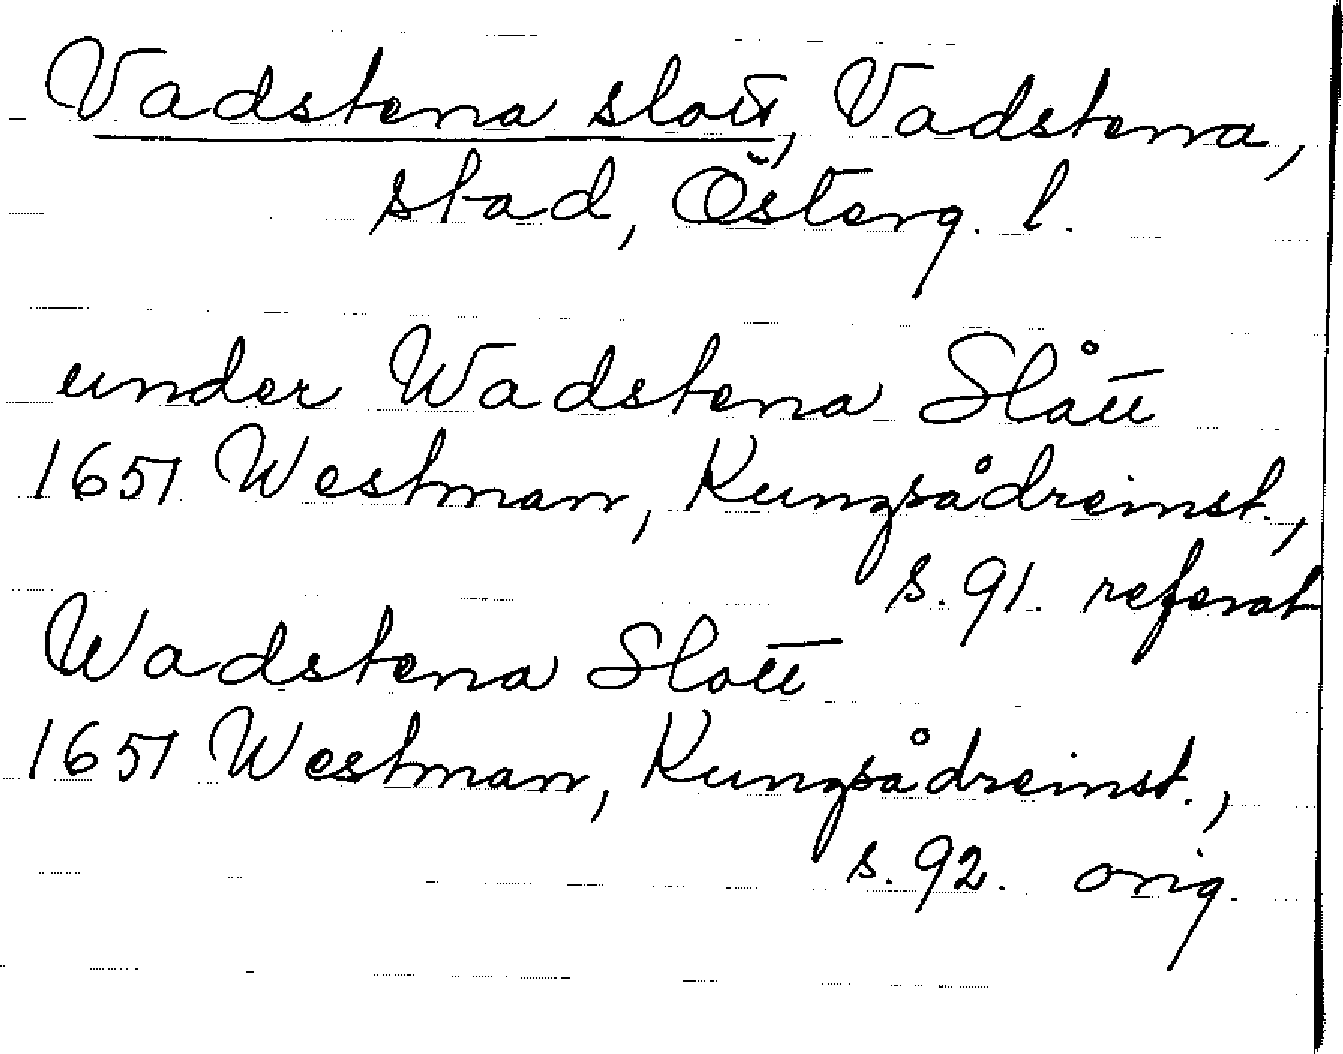 Vadstena slott, Vadstena,
stad, Österg. l.
under Wadstena Slått
1651 Westman, Kungsådreinst.,
s. 91. referat
Wadstena Slott
1651 Westman, Kungsådreinst.,
s. 92. orig.